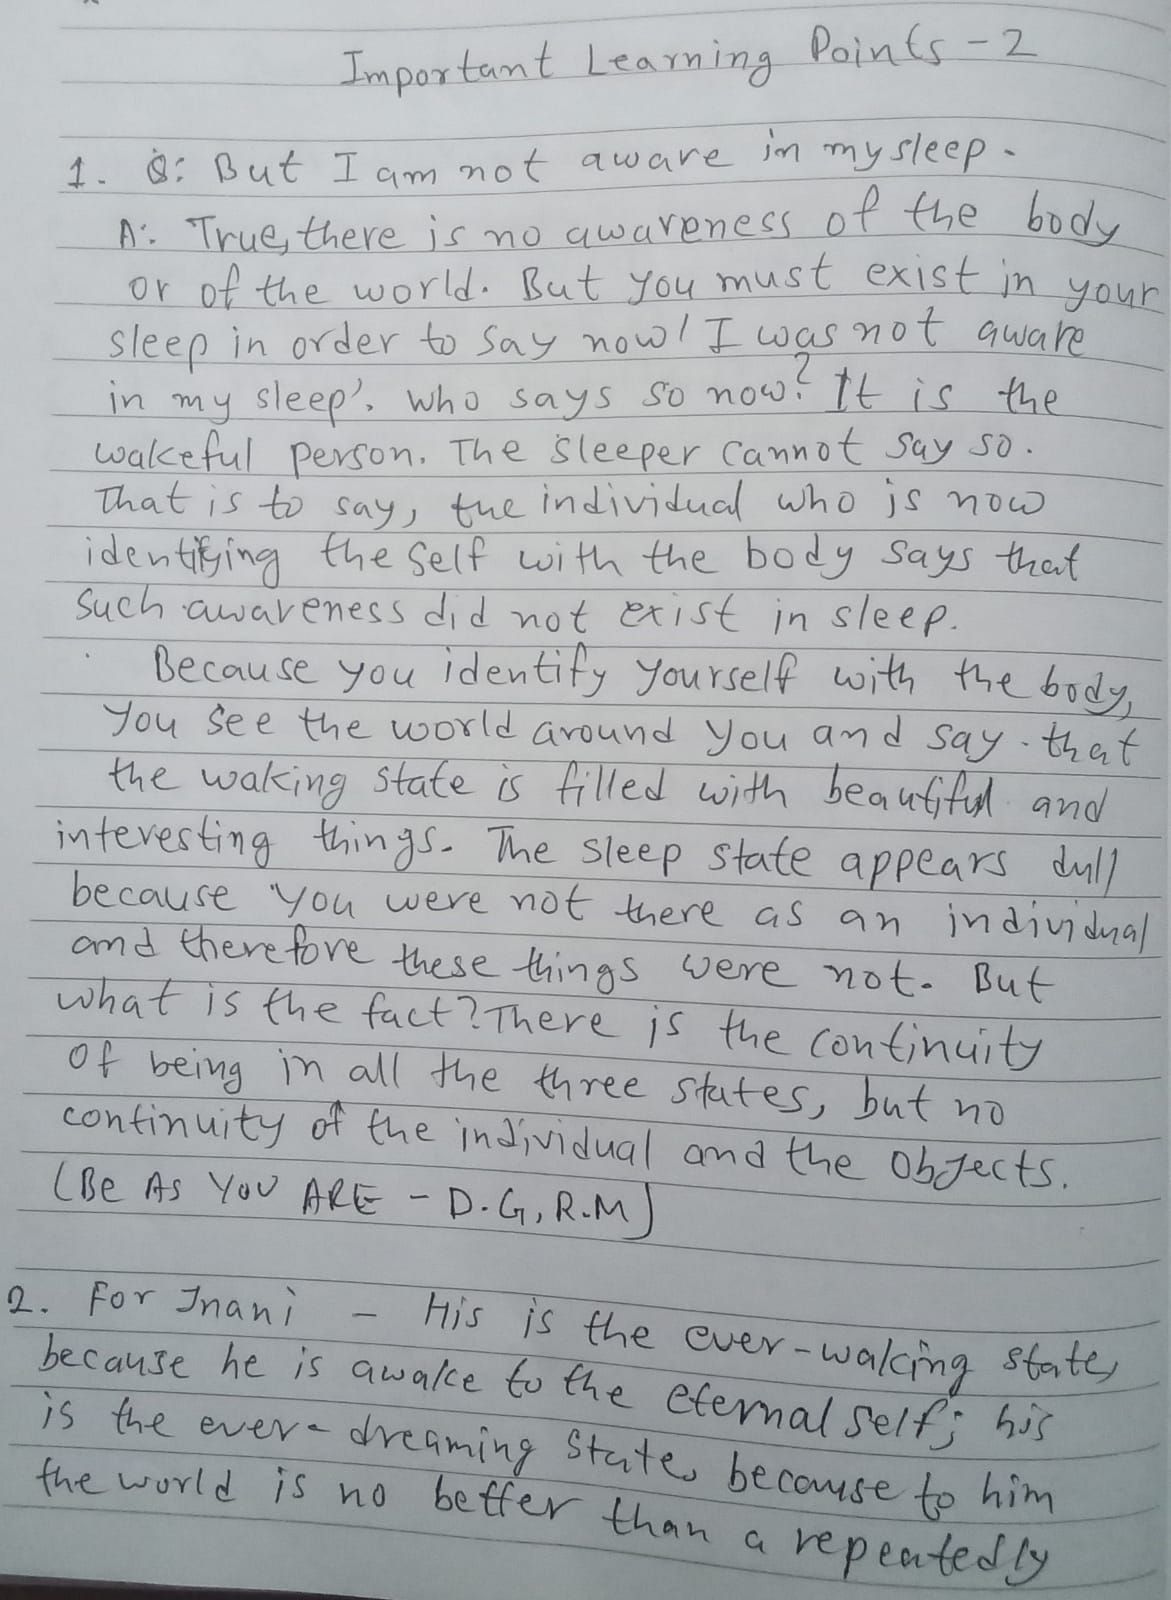 Important Learning Points - 2
1. Q: But I am not aware in my sleep.
A: True, there is no awareness of the body
or of the world. But you must exist in your
sleep in order to say now 'I was not aware
in my sleep'. who says so now? It is the
wakeful person. The sleeper cannot say so.
That is to say, the individual who is now
identifying the Self with the body says that
such awareness did not exist in sleep.
Because you identify yourself with the body,
you see the world around you and say that
the waking state is filled with beautiful and
interesting things. The sleep state appears dull
because you were not there as an individual
and therefore these things were not. But
what is the fact? There is the continuity
of being in all the three states, but no
continuity of the individual and the objects.
(BE AS YOU ARE - D.G, R.M)
2. For Jnani - His is the ever-waking state,
because he is awake to the eternal self; his
is the ever-dreaming state, because to him
the world is no better than a repeatedly